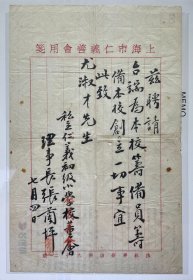 上海市仁義善會用箋
茲聘請
台端為本校籌備員籌
備本校創立一切事宜
此致
尤淑才先生
私立仁義初級小學校董會
理事長張蘭坪
七月四日
MEMO